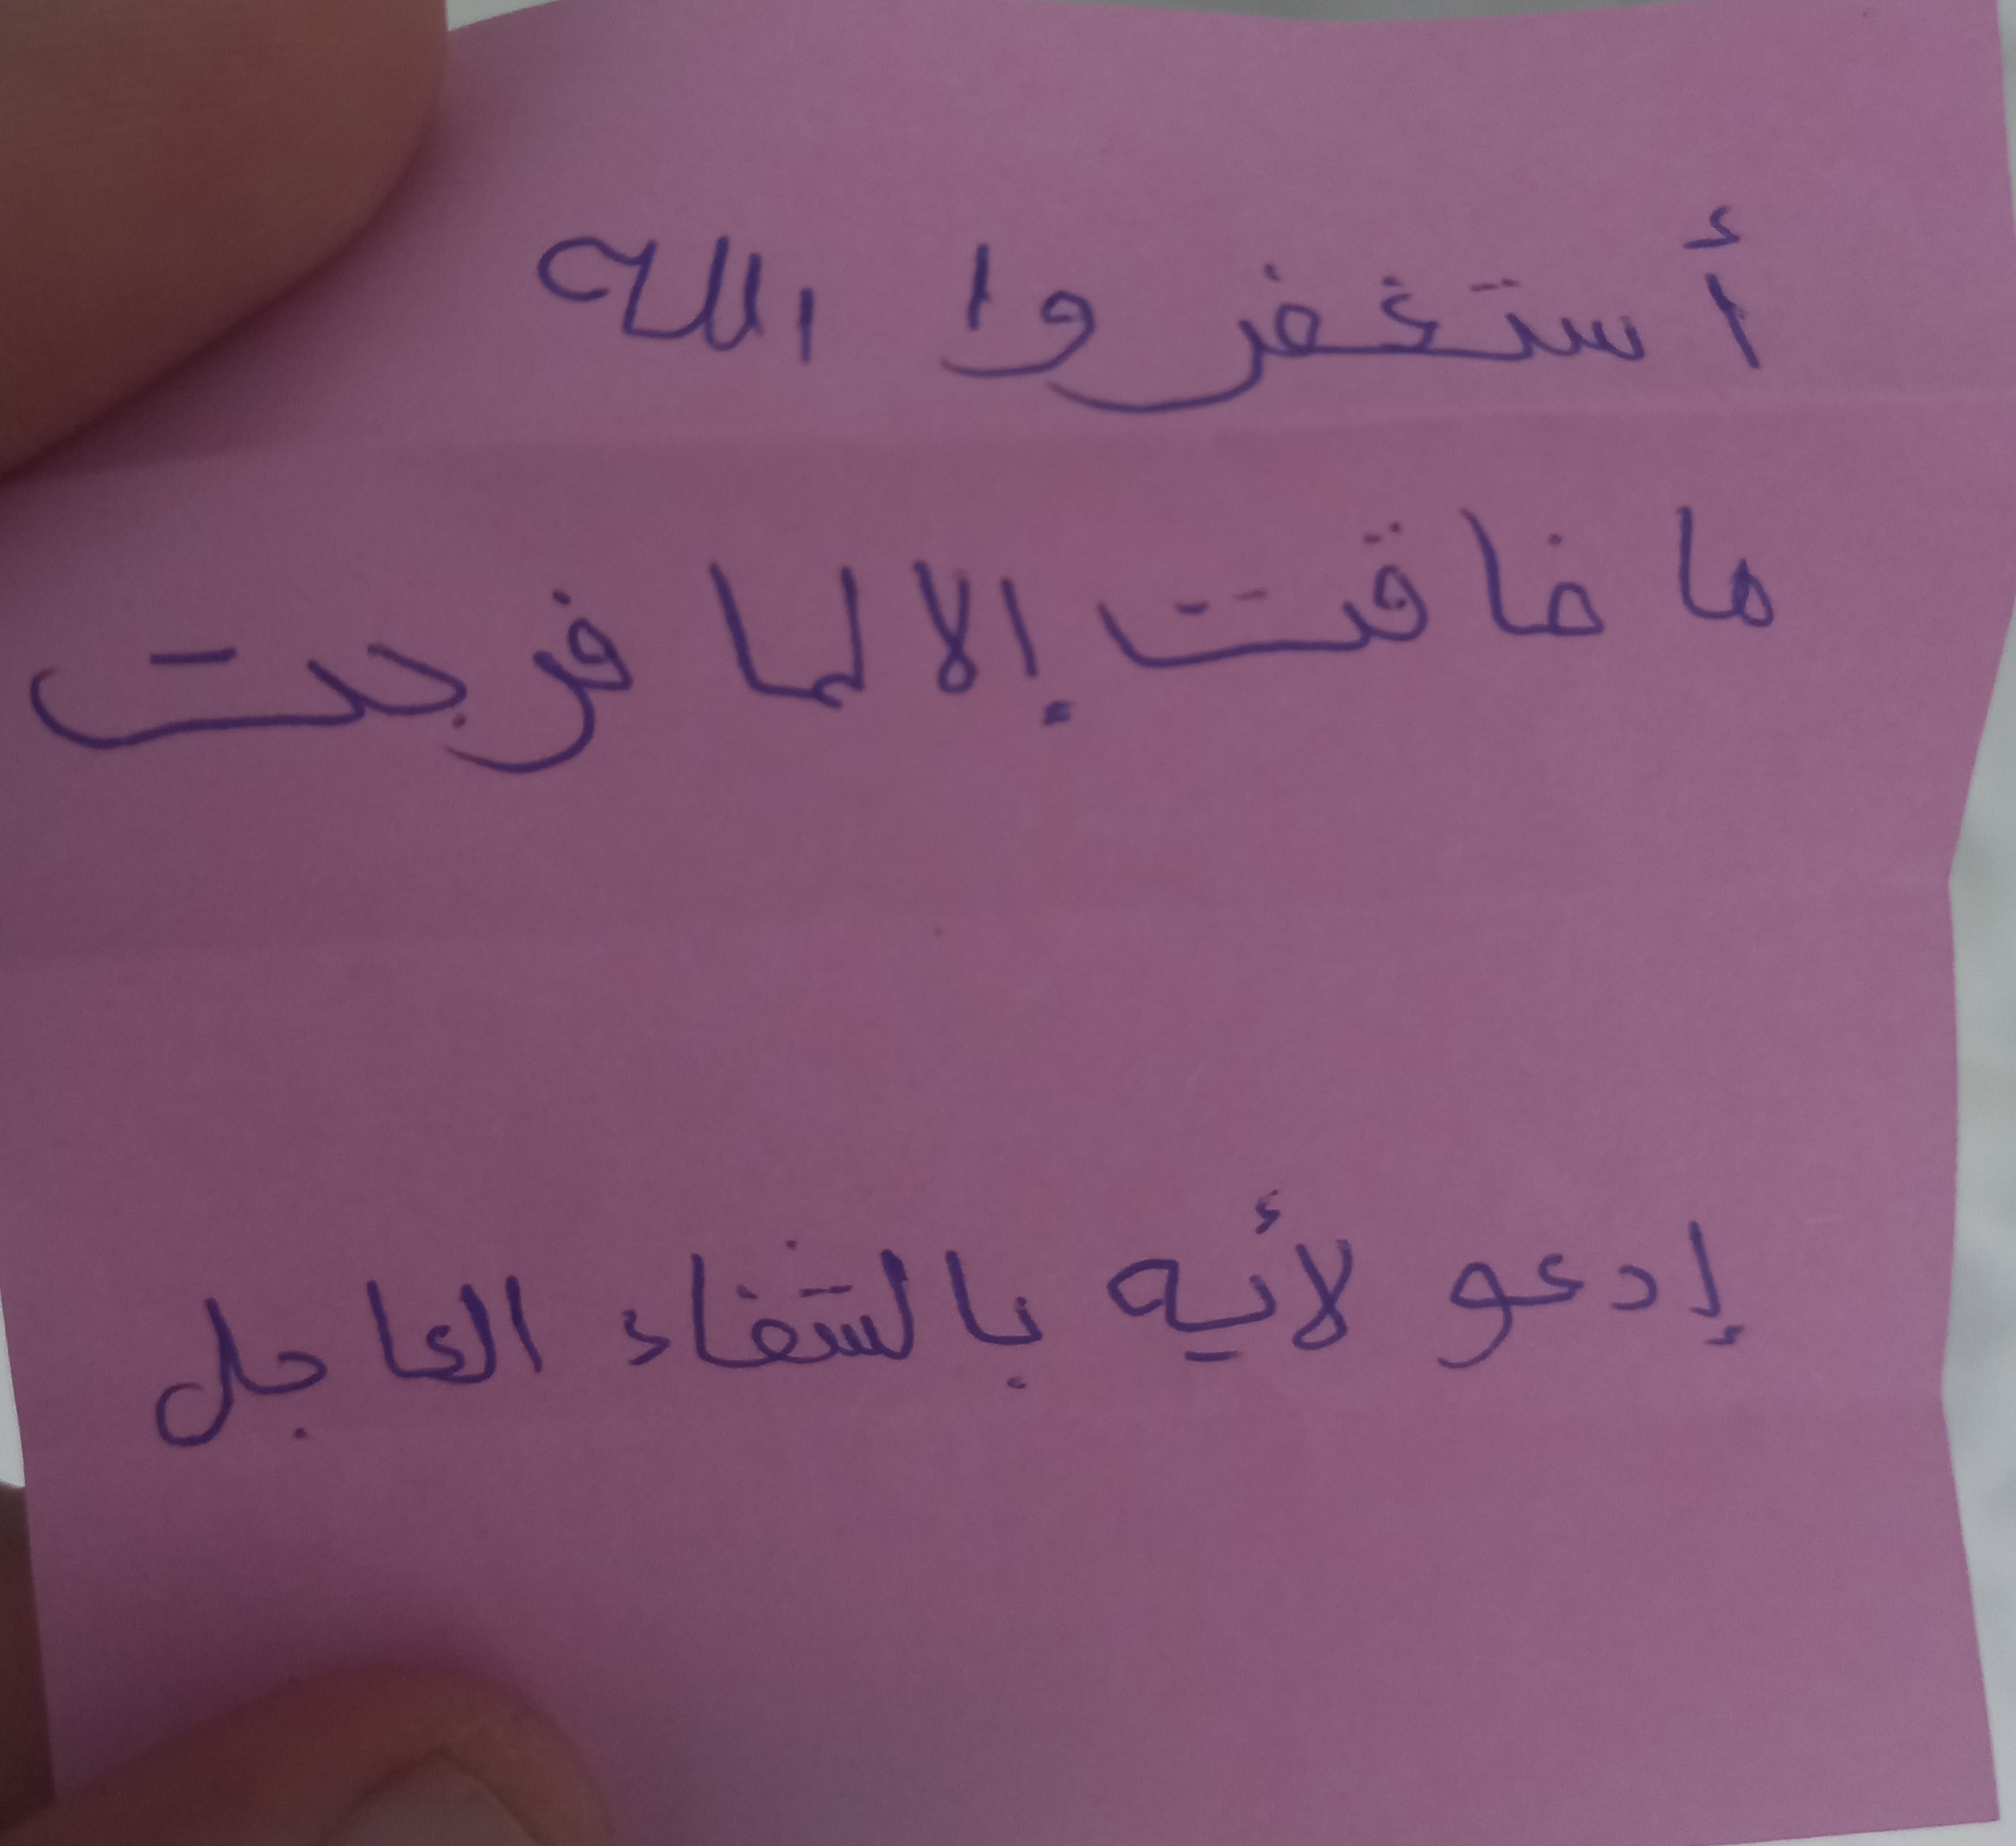 أستغفروا الله
ما ضاقت إلا لما فرجت
إدعو لأيه بالشفاء العاجل